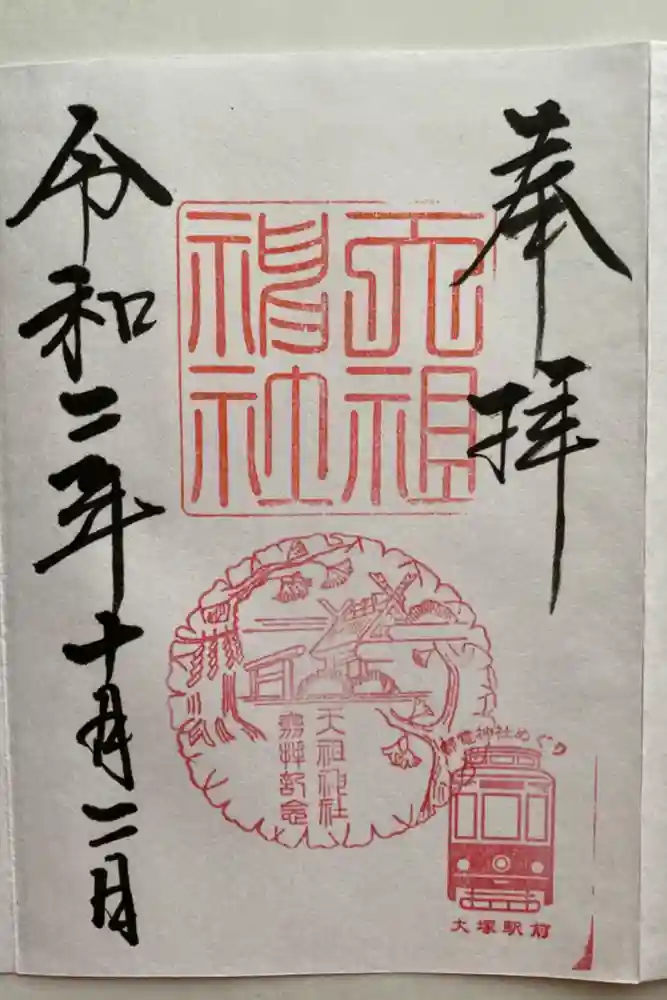 奉拝
天祖
神社
令和二年十月二日
天祖神社
參拝記念
都電神社めぐり
大塚駅前